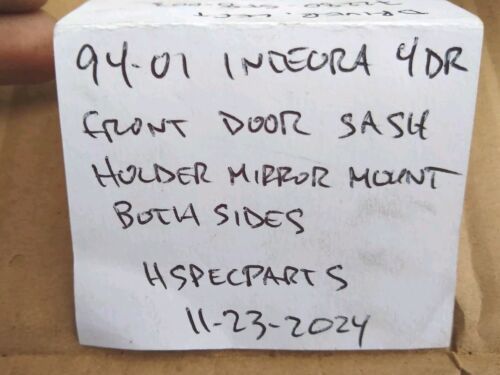 DRIVER LEFT
94-01 INTEGRA 4DR
FRONT DOOR SASH
HOLDER MIRROR MOUNT
BOTH SIDES
HSPECPARTS
11-23-2024